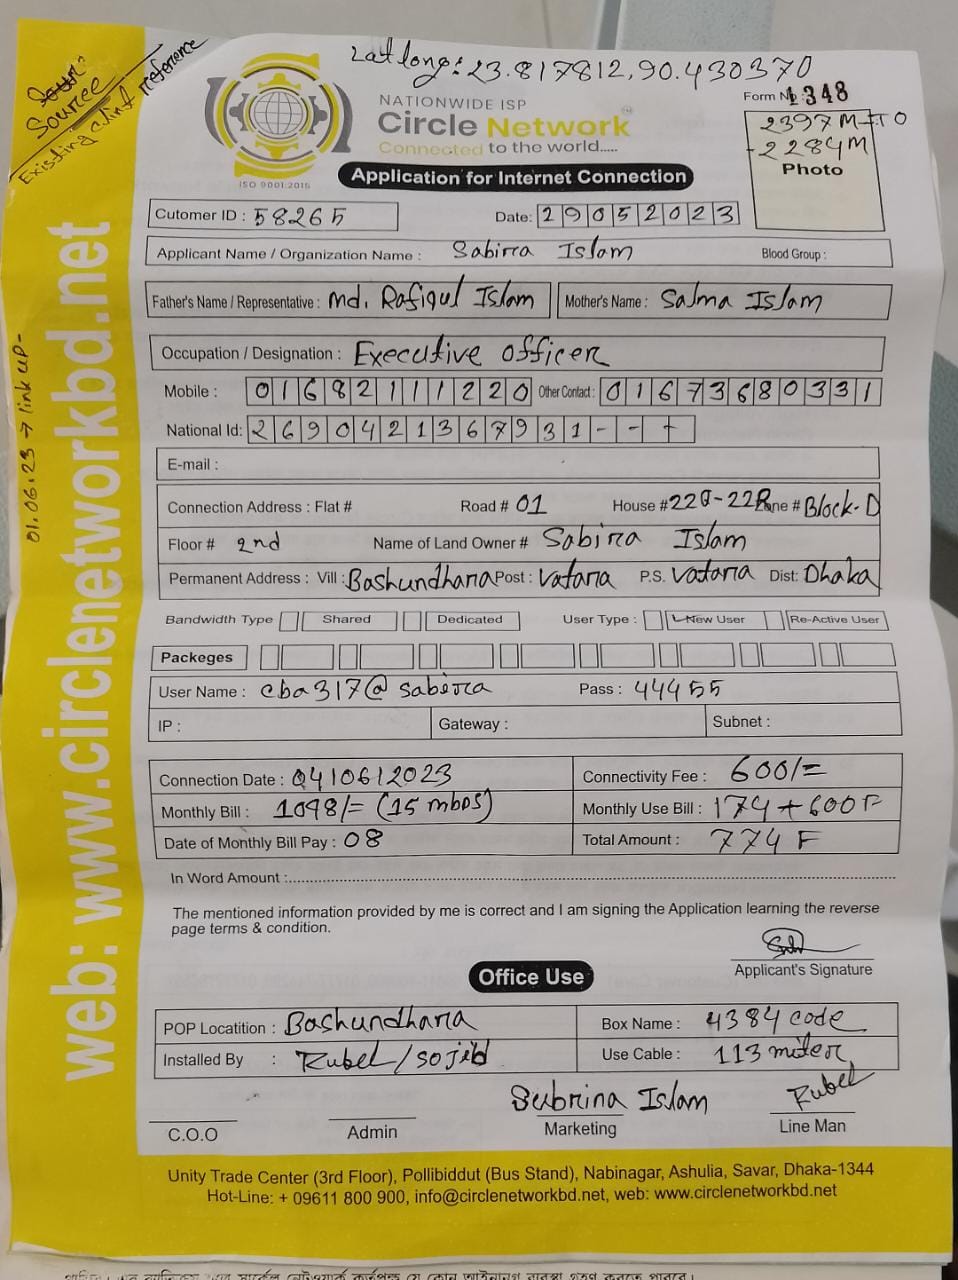 Source
Existing client reference
Lat long: 23.817812, 90.430370
NATIONWIDE ISP
Circle Network
Connected to the world.....
ISO 9001:2015
Form No : 1348
2397 M-TO
- 2284M
Photo
Application for Internet Connection
Cutomer ID : 58265
Date: 29052023
Applicant Name / Organization Name : Sabirra Islam
Blood Group :
Father's Name / Representative : Md. Rafiqul Islam
Mother's Name : Salma Islam
Occupation / Designation : Executive officer
Mobile : 01682111220 Other Contact : 01673680331
National Id: 2690421367931---
E-mail :
Connection Address : Flat # Road # 01 House # Lane # Block-D
Floor # 2nd Name of Land Owner # Sabirra Islam
Permanent Address : Vill : Bashundhara Post : Vatara P.S. Vatara Dist: Dhaka
Bandwidth Type Shared Dedicated User Type : New User Re-Active User
Packeges
User Name : cba317@sabirra Pass : 44455
IP : Gateway : Subnet :
Connection Date : 04/06/2023 Connectivity Fee : 600/=
Monthly Bill : 1098/= (15 mbps) Monthly Use Bill : 174+600F
Date of Monthly Bill Pay : 08 Total Amount : 774 F
In Word Amount :
The mentioned information provided by me is correct and I am signing the Application learning the reverse
page terms & condition.
Applicant's Signature
Office Use
POP Locatition : Bashundhara Box Name : 4384 code
Installed By : Rubel/sojib Use Cable : 113 miter
Subrina Islam Rubel
C.O.O Admin Marketing Line Man
Unity Trade Center (3rd Floor), Pollibiddut (Bus Stand), Nabinagar, Ashulia, Savar, Dhaka-1344
Hot-Line: + 09611 800 900, info@circlenetworkbd.net, web: www.circlenetworkbd.net
web: www.circlenetworkbd.net
01.06.23 → link up-